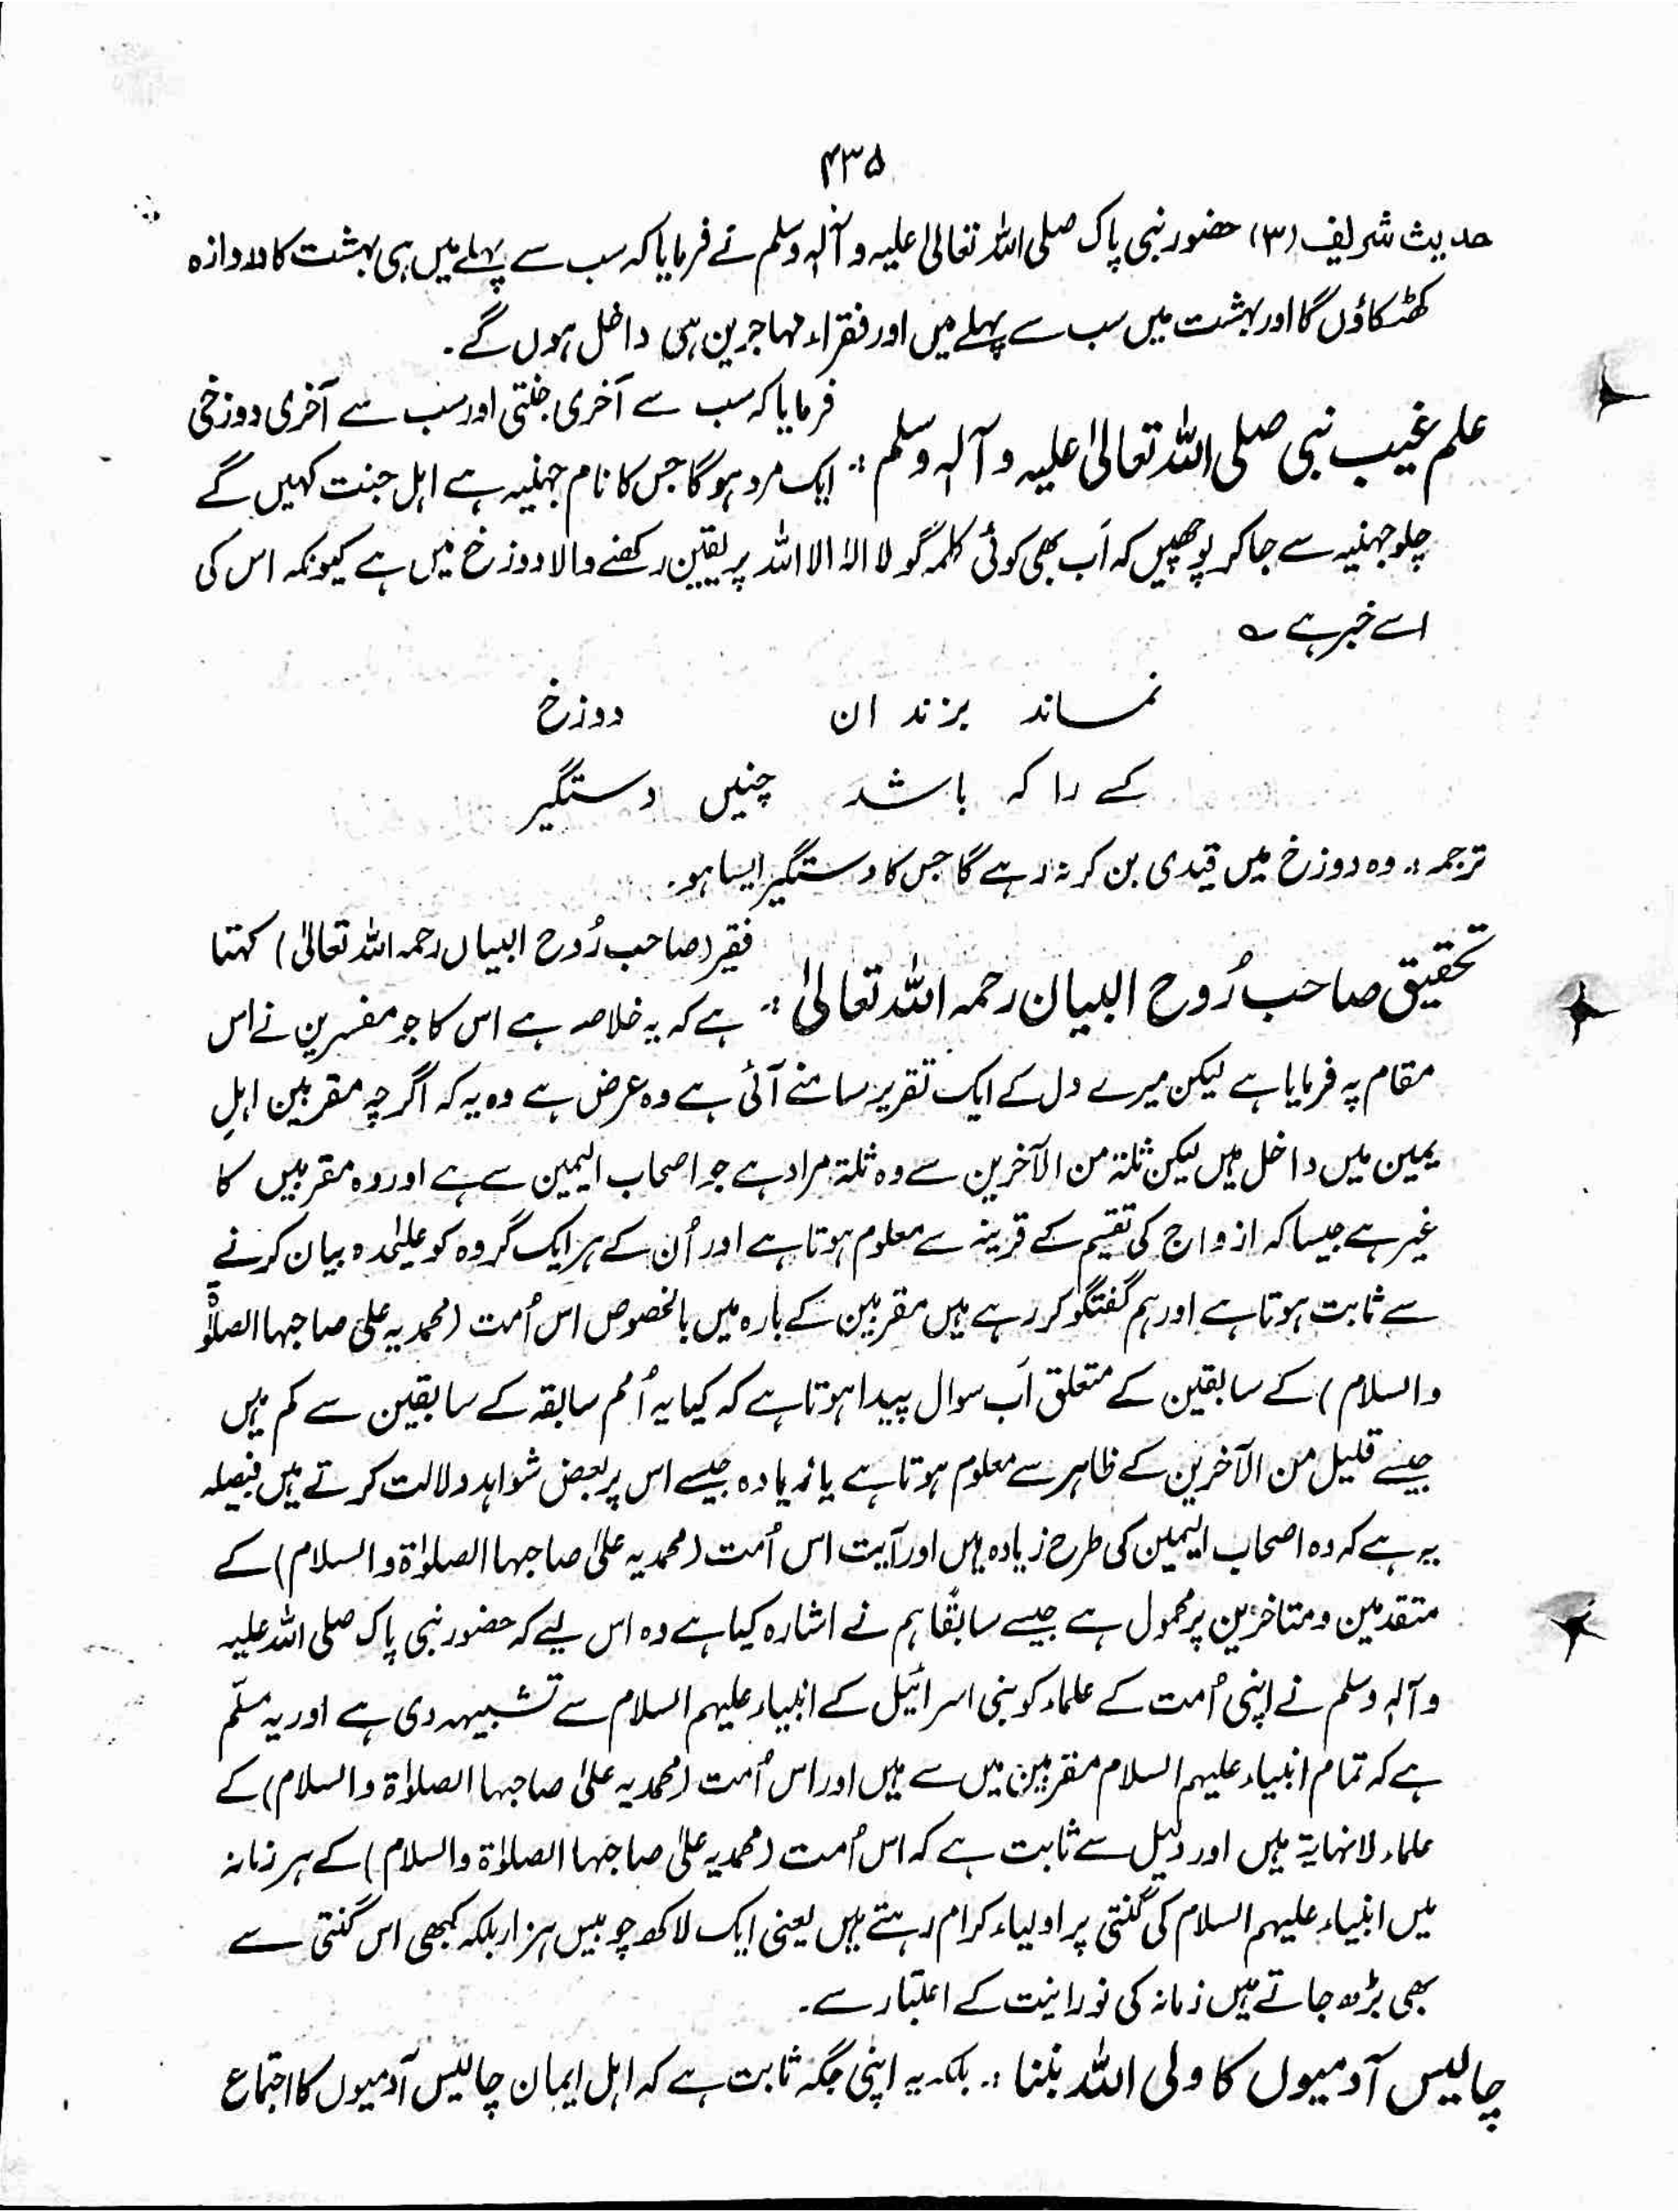 ۴۳۵
حدیث شریف (۳) حضور نبی پاک صلی اللہ تعالیٰ علیہ و آلہٖ وسلم نے فرمایا کہ سب سے پہلے میں ہی بہشت کا دروازہ
کھٹکاؤں گا اور بہشت میں سب سے پہلے میں اور فقراء مہاجرین ہی داخل ہوں گے ۔
علم غیب نبی صلی اللہ تعالیٰ علیہ و آلہٖ وسلم :۔ فرمایا کہ سب سے آخری جنتی اور سب سے آخری دوزخی
ایک مرد ہوگا جس کا نام جہنیہ ہے اہل جنت کہیں گے
چلو جہنیہ سے جاکر پوچھیں کہ اَب بھی کوئی کلمہ گو لا الٰہ الا اللہ پر یقین رکھنے والا دوزخ میں ہے کیونکہ اس کی
اسے خبر ہے ؎
نمساند بزندان دوزخ
کسے را کہ باشد چنیں دستگیر
ترجمہ :۔ وہ دوزخ میں قیدی بن کر نہ رہے گا جس کا دستگیر ایسا ہو ۔
تحقیق صاحب رُوح البیان رحمہ اللہ تعالیٰ :۔ فقیر (صاحب رُوح البیان رحمہ اللہ تعالیٰ) کہتا
ہے کہ یہ خلاصہ ہے اس کا جو مفسرین نے اس
مقام پہ فرمایا ہے لیکن میرے دل کے ایک تقریر سامنے آئی ہے وہ عرض ہے وہ یہ کہ اگرچہ مقربین اہلِ
یمین میں داخل ہیں لیکن ثلتہ من الآخرین سے وہ ثلتہ مراد ہے جو اصحاب الیمین سے ہے اور وہ مقربیں کا
غیر ہے جیسا کہ ازواج کی تقسیم کے قرینہ سے معلوم ہوتا ہے اور اُن کے ہر ایک گروہ کو علیٰحدہ بیان کرنے
سے ثابت ہوتا ہے اور ہم گفتگو کر رہے ہیں مقربین کے بارہ میں بالخصوص اس اُمت (محمدیہ علیٰ صاجہا الصلوٰۃ
والسلام) کے سابقین کے متعلق اَب سوال پیدا ہوتا ہے کہ کیا یہ اُمم سابقہ کے سابقین سے کم ہیں
جیسے قلیل من الآخرین کے ظاہر سے معلوم ہوتا ہے یا زیادہ جیسے اس پر بعض شواہد دلالت کرتے ہیں فیصلہ
یہ ہے کہ وہ اصحاب الیمین کی طرح زیادہ ہیں اور آیت اس اُمت (محمدیہ علیٰ صاجہا الصلوٰۃ والسلام) کے
متقدمین و متاخرین پر محمول ہے جیسے سابقًا ہم نے اشارہ کیا ہے وہ اس لیے کہ حضور نبی پاک صلی اللہ علیہ
و آلہٖ وسلم نے اپنی اُمت کے علماء کو بنی اسرائیل کے انبیاء علیہم السلام سے تشبیہہ دی ہے اور یہ مسلّم
ہے کہ تمام انبیاء علیہم السلام مقربین میں سے ہیں اور اس اُمت (محمدیہ علیٰ صاجہا الصلوٰۃ والسلام) کے
علماء لانہایۃ ہیں اور دلیل سے ثابت ہے کہ اس اُمت (محمدیہ علیٰ صاجہا الصلوٰۃ والسلام) کے ہر زمانہ
میں انبیاء علیہم السلام کی گنتی پر اولیاء کرام رہتے ہیں یعنی ایک لاکھ چوبیس ہزار بلکہ کبھی اس گنتی سے
بھی بڑھ جاتے ہیں زمانہ کی نورانیت کے اعتبار سے ۔
چالیس آدمیوں کا ولی اللہ بننا :۔ بلکہ یہ اپنی جگہ ثابت ہے کہ اہل ایمان چالیس آدمیوں کا اجتماع